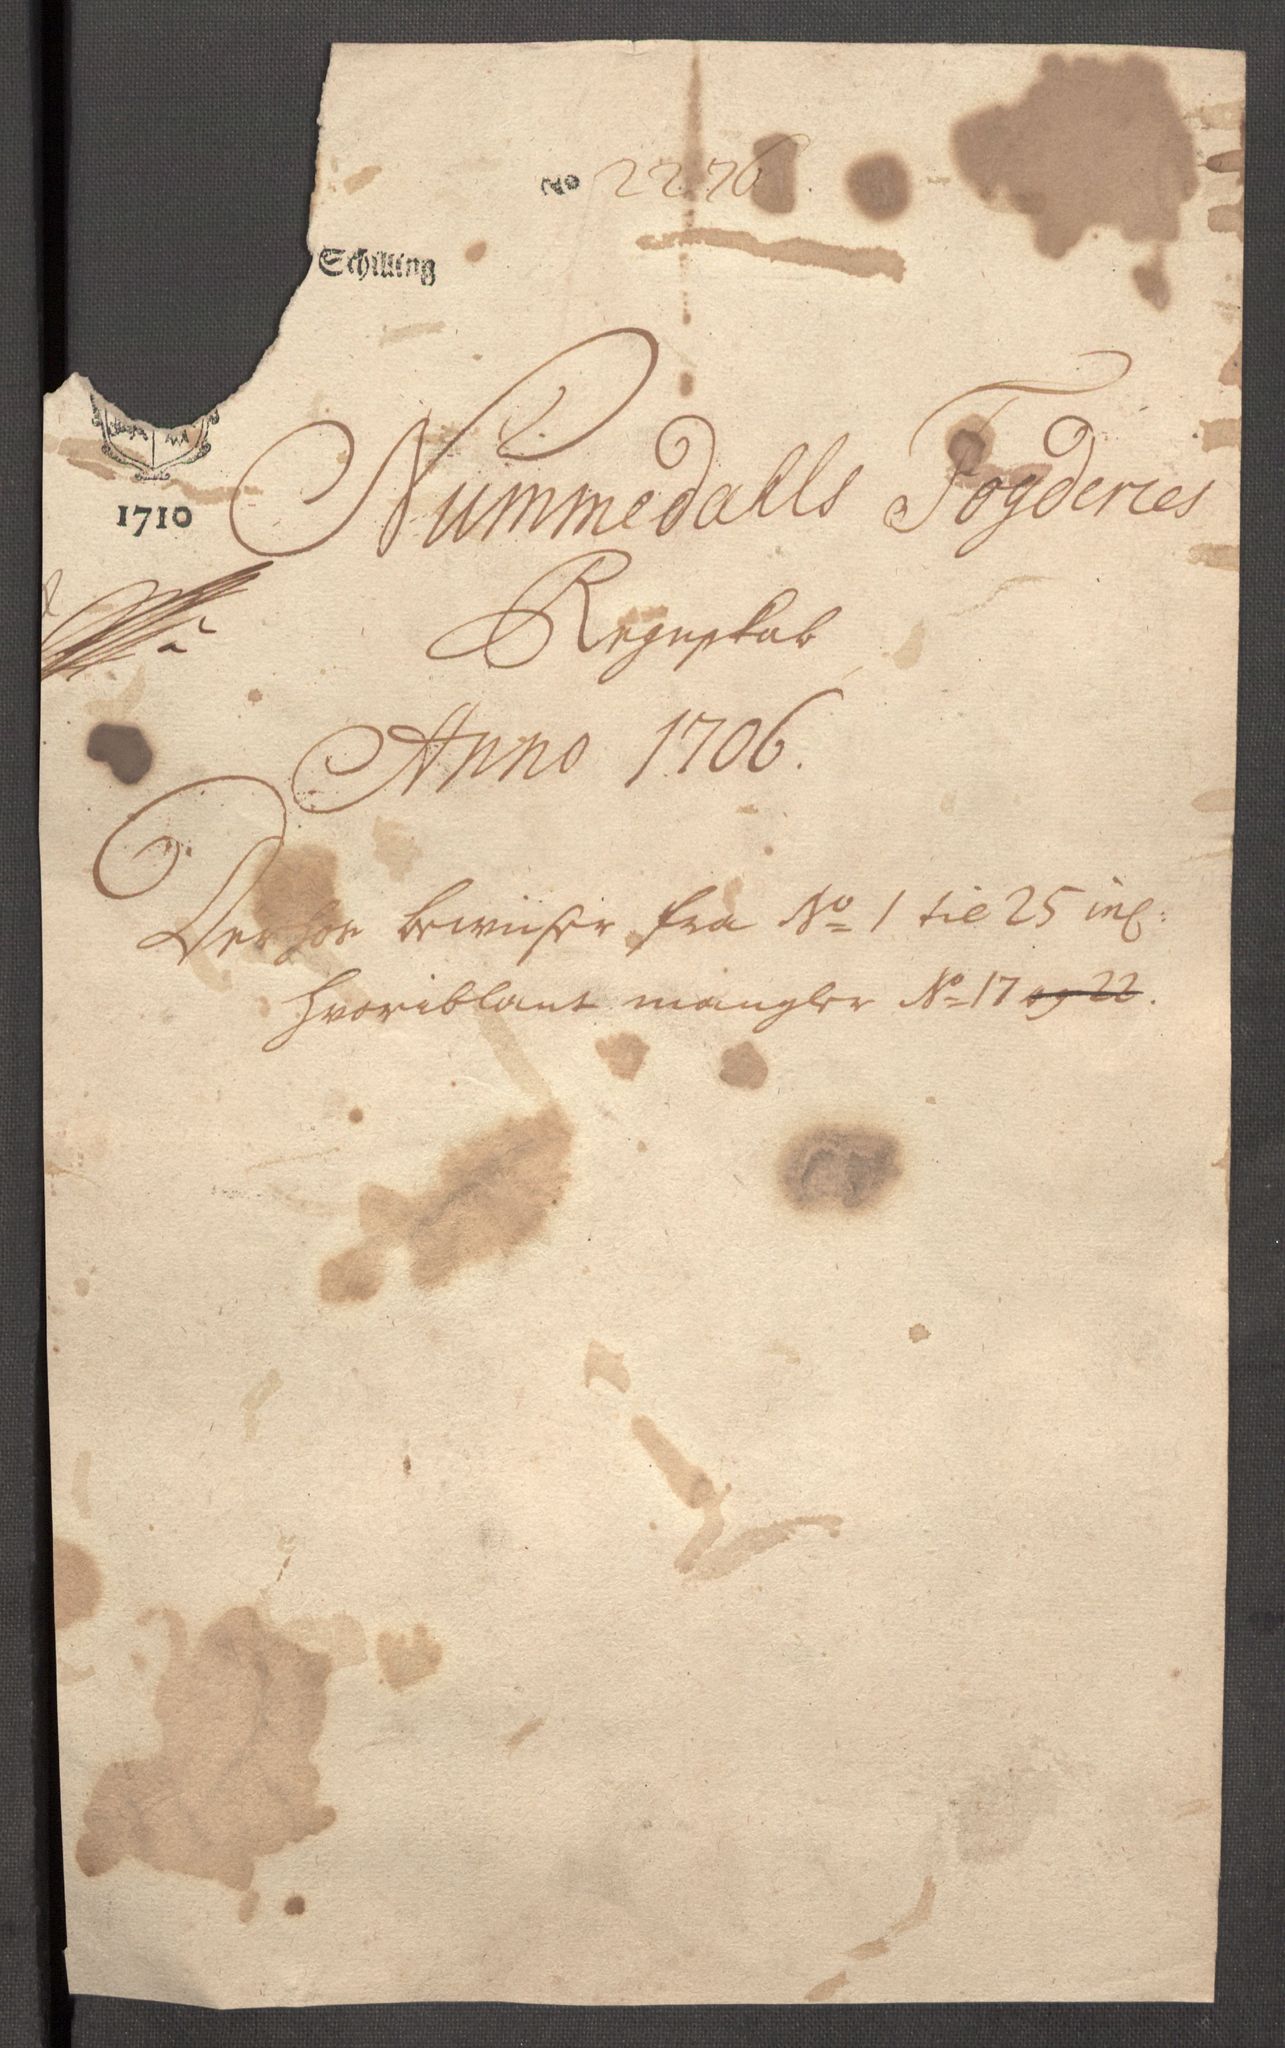 No 2276
Schilling
1710
Nummedahls Fogderies
Regnskab
Anno 1706.
Derhos bewiiser fra No 1 til 25 incl:
hvoriblant mangler No 17 og 22.